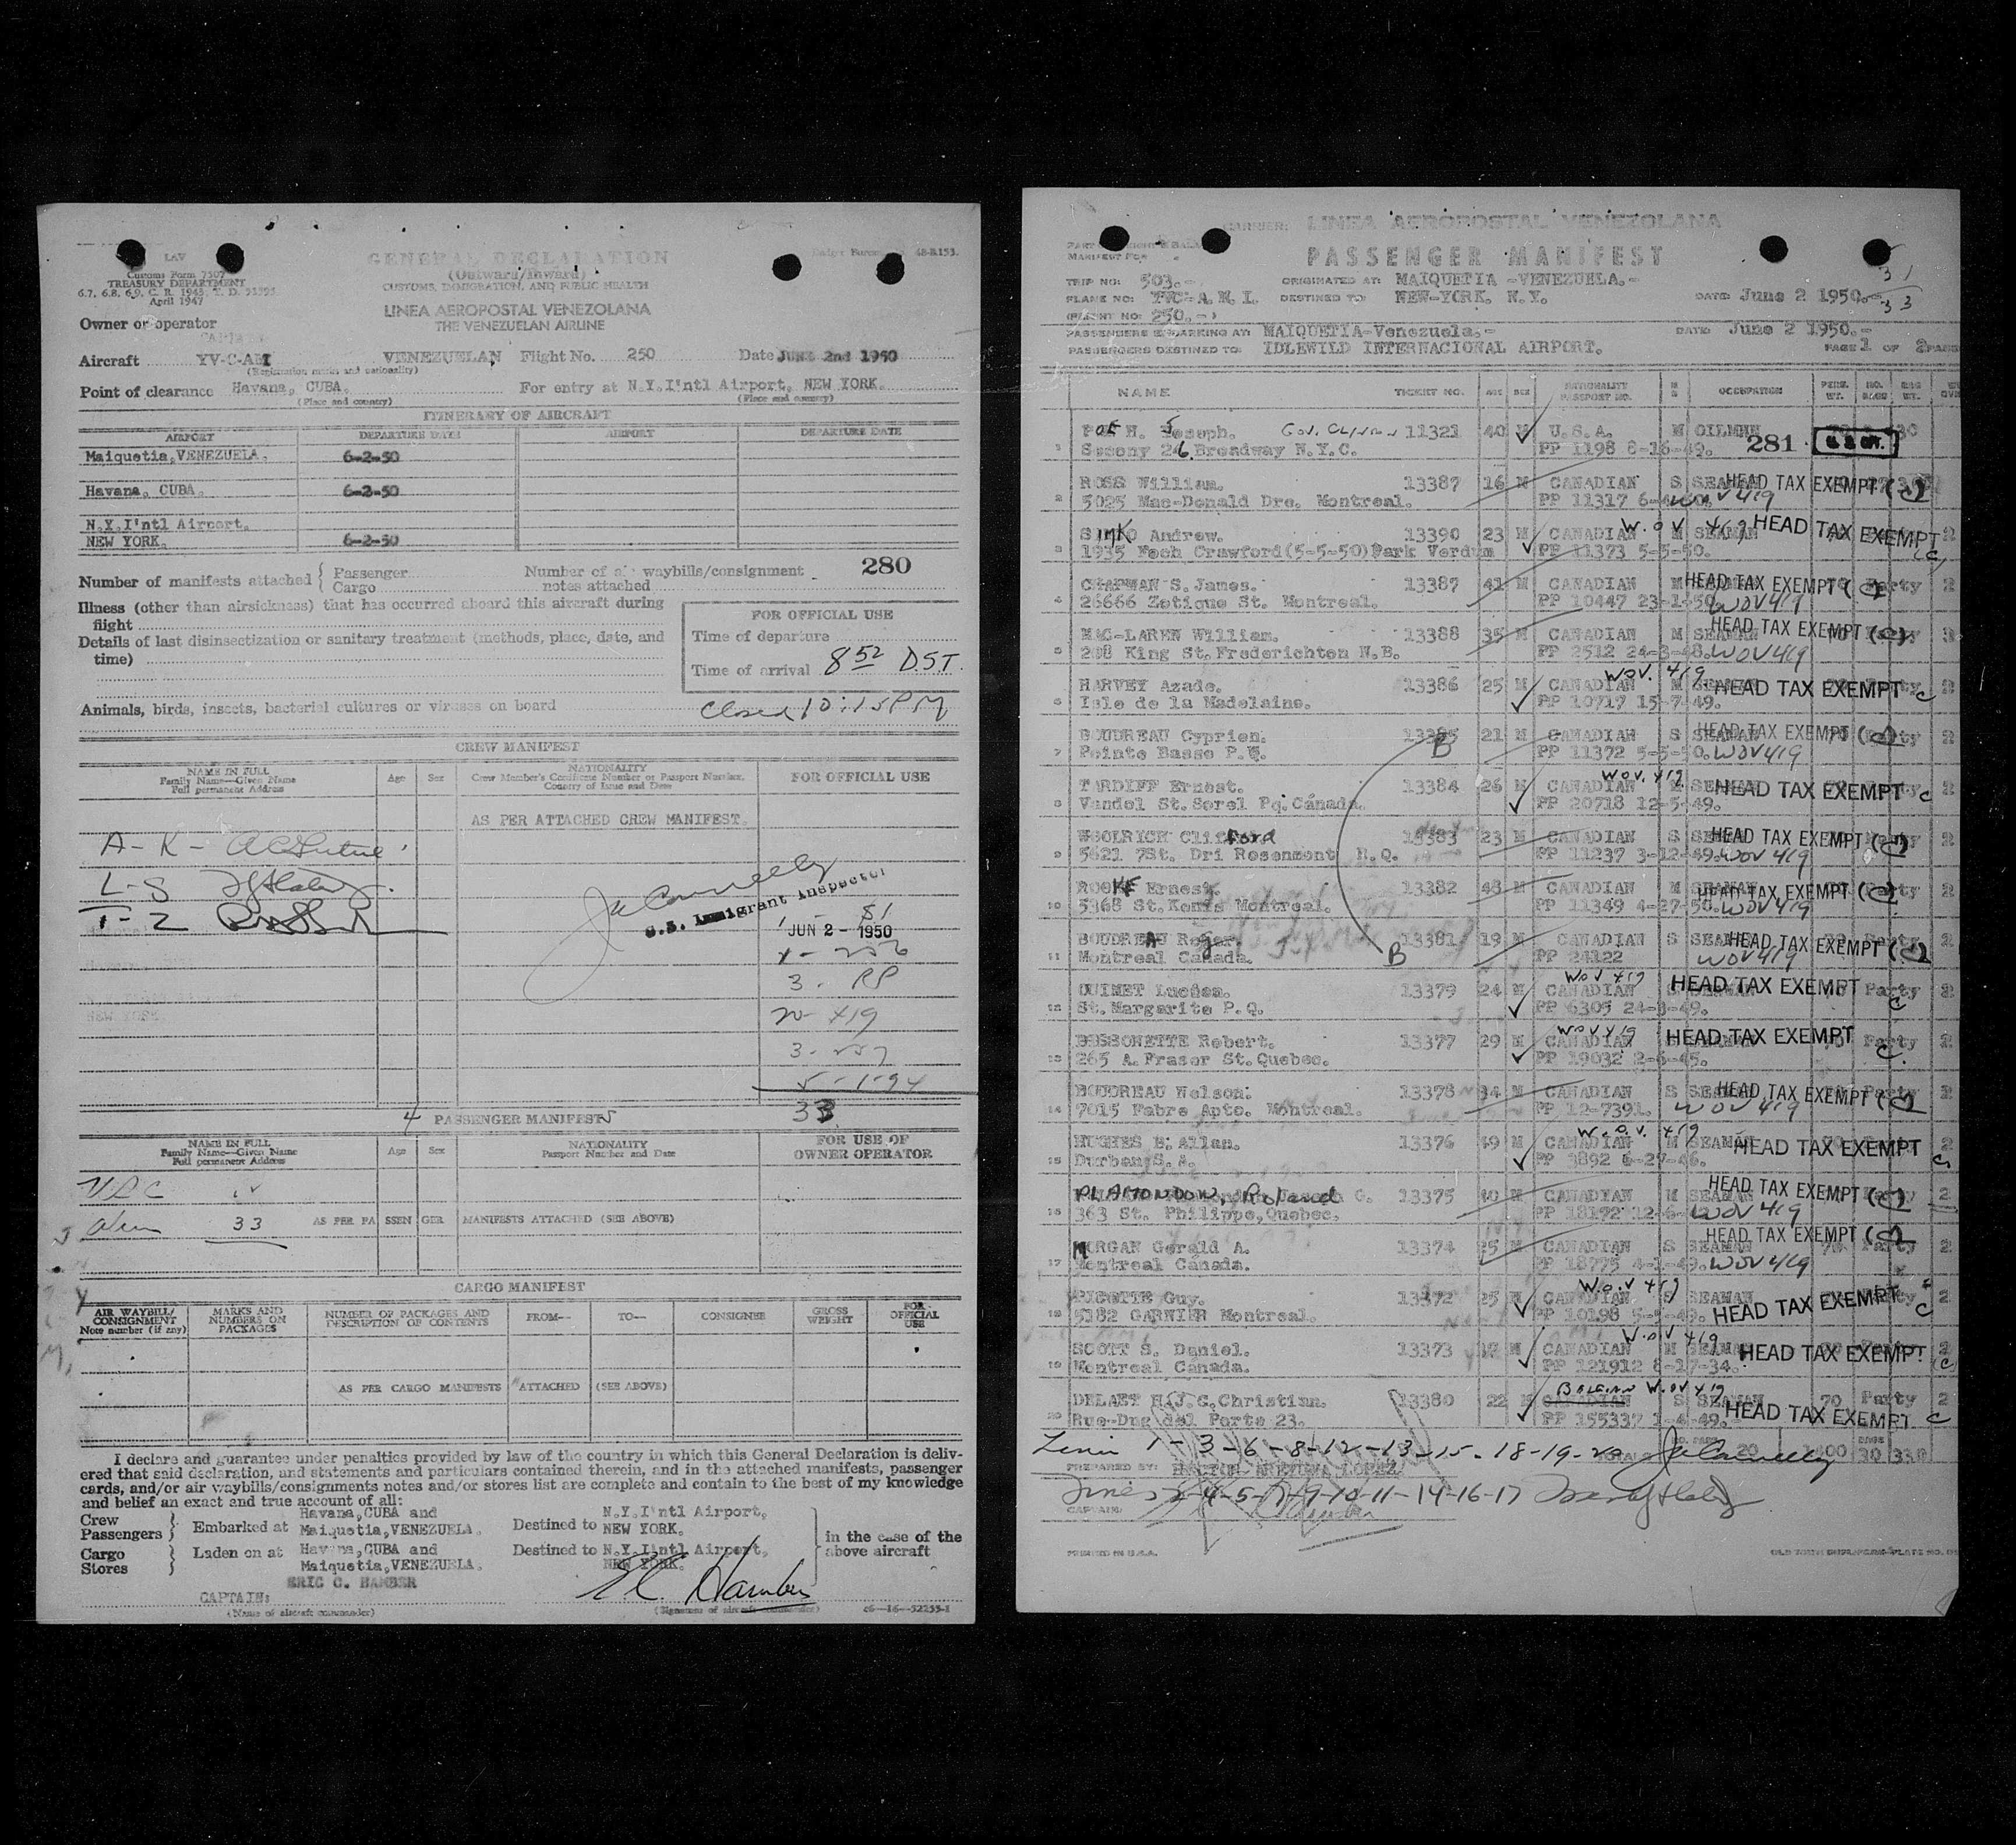 LAV
Customs Form 7507
TREASURY DEPARTMENT
April 1947
48-R153.
GENERAL DECLARATION
(Outward/Inward)
CUSTOMS, IMMIGRATION, AND PUBLIC HEALTH
LINEA AEROPOSTAL VENEZOLANA
THE VENEZUELAN AIRLINE
Owner or operator
Aircraft YV-C-AMI VENEZUELAN Flight No. 250 Date JUNE 2nd 1950
(Registration marks and nationality)
Point of clearance Havana, CUBA. For entry at N.Y.I'ntl Airport, NEW YORK.
(Place and country) (Place and country)
ITINERARY OF AIRCRAFT
AIRPORT DEPARTURE DATE AIRPORT DEPARTURE DATE
Maiquetia,VENEZUELA. 6-2-50
Havana, CUBA. 6-2-50
N.Y.I'ntl Airport.
NEW YORK. 6-2-50
280
Number of manifests attached { Passenger Number of air waybills/consignment
Cargo notes attached
Illness (other than airsickness) that has occurred aboard this aircraft during
flight
Details of last disinsectization or sanitary treatment (methods, place, date, and
time)
FOR OFFICIAL USE
Time of departure
Time of arrival 8 52 D.S.T.
Animals, birds, insects, bacterial cultures or viruses on board
Closed 10:15 PM
CREW MANIFEST
NAME IN FULL
Family Name—Given Name
Full permanent Address
Age Sex
NATIONALITY
Crew Member's Certificate Number or Passport Number,
Country of Issue and Date
FOR OFFICIAL USE
AS PER ATTACHED CREW MANIFEST.
A-K-
L-S
T-Z
U.S. Immigrant Inspector
JUN 2 - 1950
3. PP
20- 419
3-
33
4 PASSENGER MANIFESTS
NAME IN FULL
Family Name—Given Name
Full permanent Address
Age Sex
NATIONALITY
Passport Number and Date
FOR USE OF
OWNER OPERATOR
33
AS PER PASSENGER MANIFESTS ATTACHED (SEE ABOVE)
CARGO MANIFEST
AIR WAYBILL/
CONSIGNMENT
Note number (if any)
MARKS AND
NUMBERS ON
PACKAGES
NUMBER OF PACKAGES AND
DESCRIPTION OF CONTENTS
FROM— TO— CONSIGNEE
GROSS
WEIGHT
FOR
OFFICIAL
USE
AS PER CARGO MANIFESTS ATTACHED (SEE ABOVE)
I declare and guarantee under penalties provided by law of the country in which this General Declaration is deliv-
ered that said declaration, and statements and particulars contained therein, and in the attached manifests, passenger
cards, and/or air waybills/consignments notes and/or stores list are complete and contain to the best of my knowledge
and belief an exact and true account of all:
Crew
Passengers } Embarked at Havana,CUBA and Maiquetia,VENEZUELA. Destined to N.Y.I'ntl Airport, NEW YORK.
Cargo
Stores } Laden on at Havana,CUBA and Maiquetia,VENEZUELA. Destined to N.Y.I'ntl Airport, NEW YORK.
in the case of the
above aircraft
ERIC C. HAMBER
CAPTAIN:
(Name of aircraft commander)
E C. Hamber
(Signature of aircraft commander)
c6—16—52255-1
CARRIER: LINEA AEROPOSTAL VENEZOLANA
PASSENGER MANIFEST
TRIP NO: 503.- ORIGINATED AT: MAIQUETIA -VENEZUELA.-
DESTINED TO: NEW-YORK. N.Y. DATE: June 2 1950.-
31
33
(FLIGHT NO: 250.-)
PASSENGERS EMBARKING AT: MAIQUETIA-Venezuela.- DATE: June 2 1950.-
PASSENGERS DESTINED TO: IDLEWILD INTERNACIONAL AIRPORT. PAGE 1 OF 2 PAGES
NAME TICKET NO. AGE SEX NATIONALITY PASSPORT NO. OCCUPATION PERS. WT. NO. BAGS BAG WT.
1 POE H. Joseph. 11321 40 M U.S.A. M OILMEN
Socony 26 Broadway N.Y.C. PP 1198 8-16-49. 281
2 ROSS William. 13387 16 M CANADIAN S SEAMAN HEAD TAX EXEMPT (C)
5025 Mac-Donald Dre. Montreal. PP 11317 WOV 419
3 SIMKO Andrew. 13390 23 M CANADIAN W.O.V 419 HEAD TAX EXEMPT C
1935 Foch Crawford(5-5-50)Park Verdum PP 11373 5-5-50.
4 CHAPMAN S. James. 13387 41 M CANADIAN M SEAMAN HEAD TAX EXEMPT (C) Party 2
26666 Zotique St. Montreal. PP 10447 23-1-50 WOV 419
5 MAC-LAREN William. 13388 35 M CANADIAN M SEAMAN HEAD TAX EXEMPT (C)
208 King St.Frederichton N.B. PP 2512 24-3-48. WOV 419
6 HARVEY Azade. 13386 25 M CANADIAN WOV. 419 M SEAMAN HEAD TAX EXEMPT C 2
Isle de la Madelaine. PP 10717 15-7-49.
7 BOUDREAU Cyprien. 13385 B 21 M CANADIAN S SEAMAN HEAD TAX EXEMPT (C) 2
Pointe Basse P.Q. PP 11372 5-5-50. WOV 419
8 TARDIFF Ernest. 13384 26 M CANADIAN WOV. 419 M SEAMAN HEAD TAX EXEMPT C 2
Vandel St.Sorel Pq.Cánada. PP 20718 12-5-49.
9 WOOLRICH Clifford 13383 23 M CANADIAN S SEAMAN HEAD TAX EXEMPT (C) 2
5621 7St. Dri Rosenmont P.Q. PP 11237 3-12-49. WOV 419
10 ROOKE Ernest. 13382 48 M CANADIAN M SEAMAN HEAD TAX EXEMPT (C) 2
5368 St.Kenis Montreal. PP 11349 4-27-50. WOV 419
11 BOUDREAU Roger. 13381 B 19 M CANADIAN S SEAMAN HEAD TAX EXEMPT (C) 2
Montreal Cañada. PP 24122 WOV 419
12 OUIMET Lucien. 13379 24 M CANADIAN WOV 419 HEAD TAX EXEMPT C Party 2
St.Margarite P.Q. PP 6305 24-3-49.
13 BESSONETTE Robert. 13377 29 M CANADIAN WOV 419 HEAD TAX EXEMPT C. Party 2
265 A.Fraser St.Quebec. PP 19032 2-6-45.
14 BOUDREAU Nelson. 13378 34 M CANADIAN S SEAMAN HEAD TAX EXEMPT (C) 2
7015 Fabre Apto. Montreal. PP 12-7391. WOV 419
15 HUGHES B. Allan. 13376 49 M CANADIAN W.O.V. 419 M SEAMAN HEAD TAX EXEMPT C 2
Durban S. A. PP 3892 6-27-46.
16 PLAMONDON, Roland 13375 40 M CANADIAN M SEAMAN HEAD TAX EXEMPT (C) 2
363 St. Philippe,Quebec. PP 18192 WOV 419
17 MORGAN Gerald A. 13374 25 M CANADIAN S SEAMAN HEAD TAX EXEMPT (C) Party 2
Montreal Cánada. PP 18775 4-1-49. WOV 419
18 Guy. 13372 25 M CANADIAN W.O.V 419 SEAMAN HEAD TAX EXEMPT C 2
5182 GARNIER Montreal. PP 10198 5-5-49.
19 SCOTT S. Daniel. 13373 M CANADIAN W.O.V 419 M SEAMAN HEAD TAX EXEMPT (C) 2
Montreal Cánada. PP 121912 8-17-34.
20 DELAET H.J.G.Christian. 13380 22 M CANADIAN BELGIAN W.OV 419 S SEAMAN 70 Party 2
Rue-Dug del Porte 23. PP 155337 1-4-49. HEAD TAX EXEMPT. C
1-3-6-8-12-13-15-18-19-20 20 1400 30 330
PREPARED BY: LOPEZ
2-4-5-7-9-10-11-14-16-17
CAPTAIN:
PRINTED IN U.S.A.